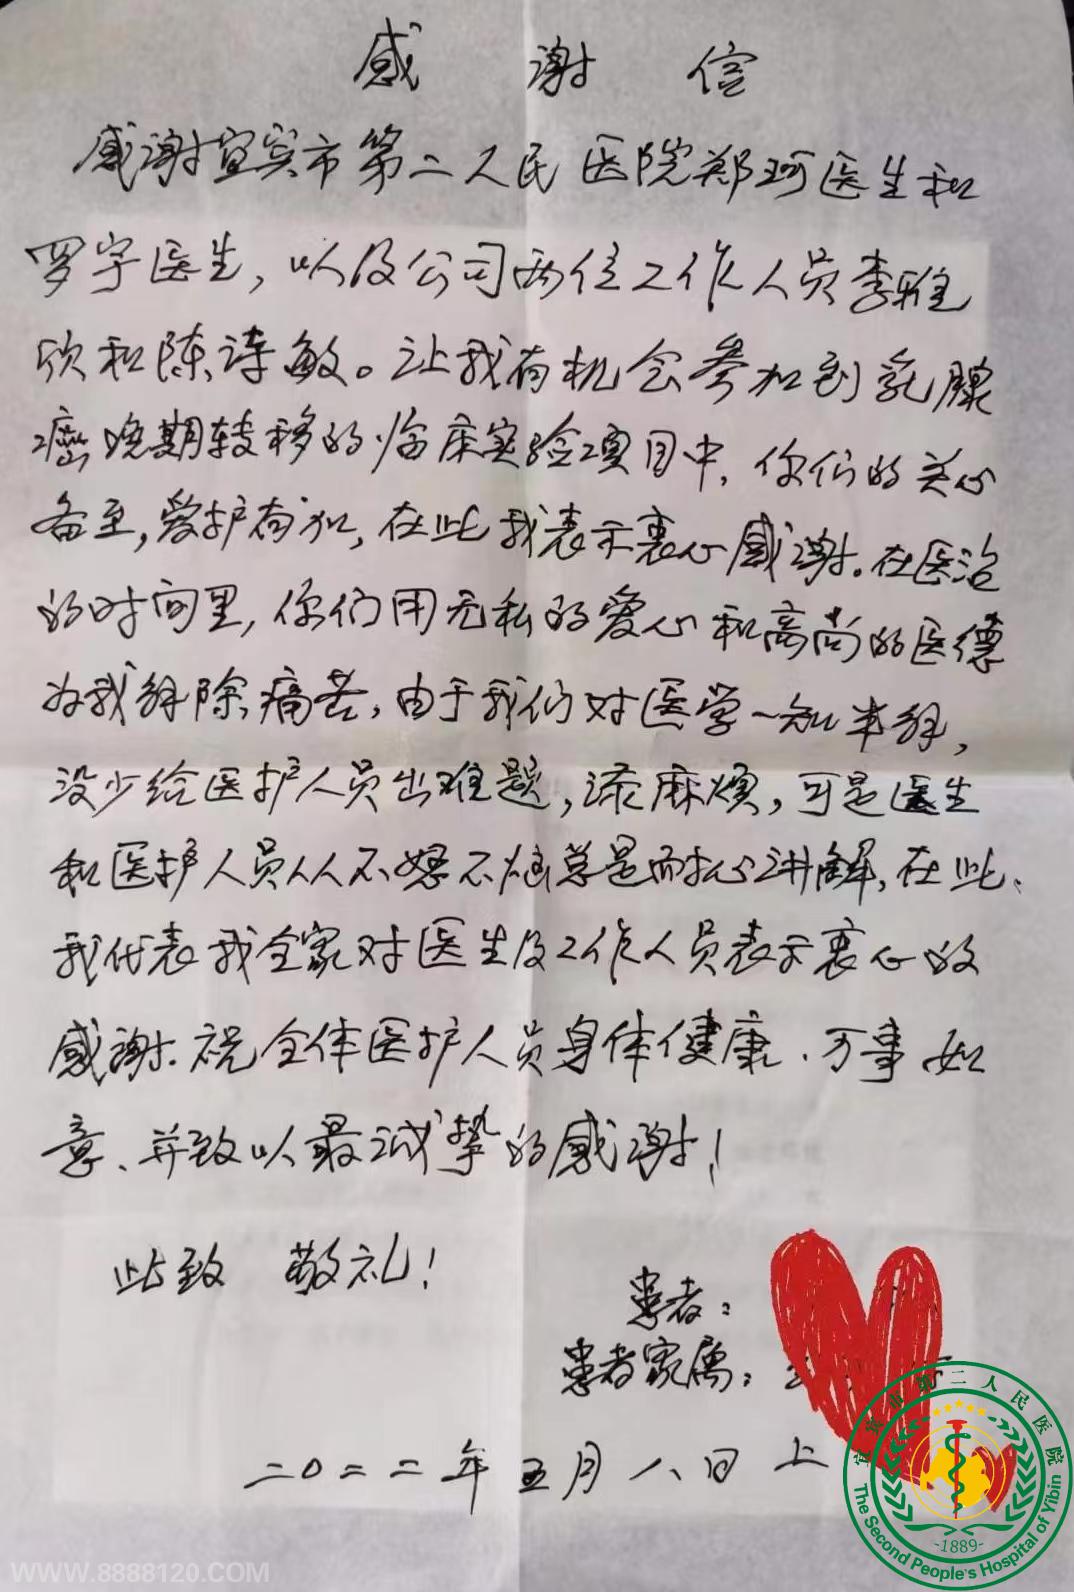 感谢信
感谢宜宾市第二人民医院郑珂医生和
罗宇医生，以及公司两位工作人员李雅
欣和陈诗敏。让我有机会参加到乳腺
癌晚期转移的临床实验项目中，你们的关心
备至，爱护有加，在此我表示衷心感谢。在医治
的时间里，你们用无私的爱心和高尚的医德
为我解除痛苦，由于我们对医学一知半解，
没少给医护人员出难题，添麻烦，可是医生
和医护人员从不怒不恼总是耐心讲解，在此、
我代表我全家对医生及工作人员表示衷心的
感谢．祝全体医护人员身体健康．万事如
意、并致以最诚挚的感谢！
此致 敬礼！
患者：
患者家属：
二〇二二年五月八日上
宜宾市第二人民医院
The Second People's Hospital of Yibin
-1889-
WWW.8888120.COM